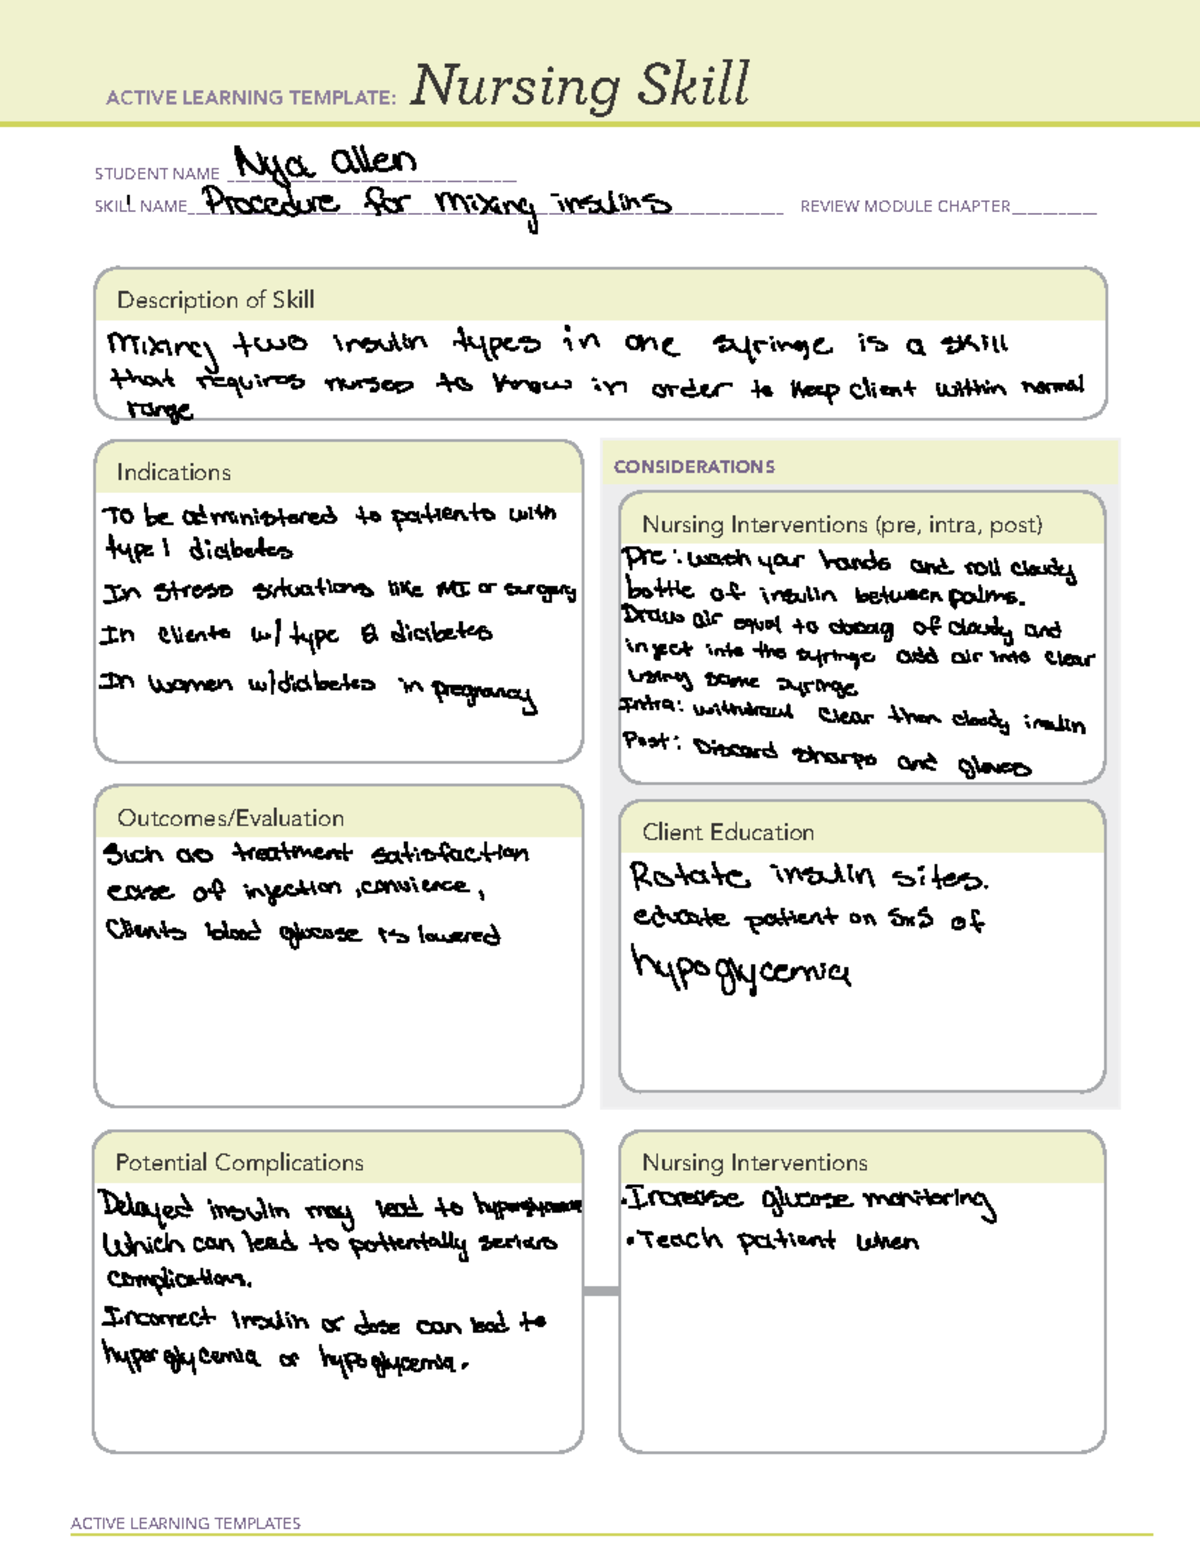 ACTIVE LEARNING TEMPLATE: Nursing Skill
STUDENT NAME Nya Allen
SKILL NAME Procedure for mixing insulins REVIEW MODULE CHAPTER
Description of Skill
Mixing two insulin types in one syringe is a skill
that requires nurses to know in order to keep client within normal
range
Indications
To be administered to patients with
type 1 diabetes
In stress situations like MI or surgery
In clients w/ type 2 diabetes
In women w/diabetes in pregnancy
CONSIDERATIONS
Nursing Interventions (pre, intra, post)
Pre: wash your hands and roll cloudy
bottle of insulin between palms.
Draw air equal to dosag of cloudy and
inject into the syringe add air into clear
using same syringe
Intra: withdraw clear then cloudy insulin
Post: Discard sharps and gloves
Outcomes/Evaluation
Such as treatment satisfaction
ease of injection, convience,
Clients blood glucose is lowered
Client Education
Rotate insulin sites.
educate patient on SxS of
hypoglycemia
Potential Complications
Delayed insulin may lead to hyperglycemia
Which can lead to pottentally serious
complications.
Incorrect insulin or dose can lead to
hyperglycemia or hypoglycemia.
Nursing Interventions
•Increase glucose monitoring
•Teach patient when
ACTIVE LEARNING TEMPLATES